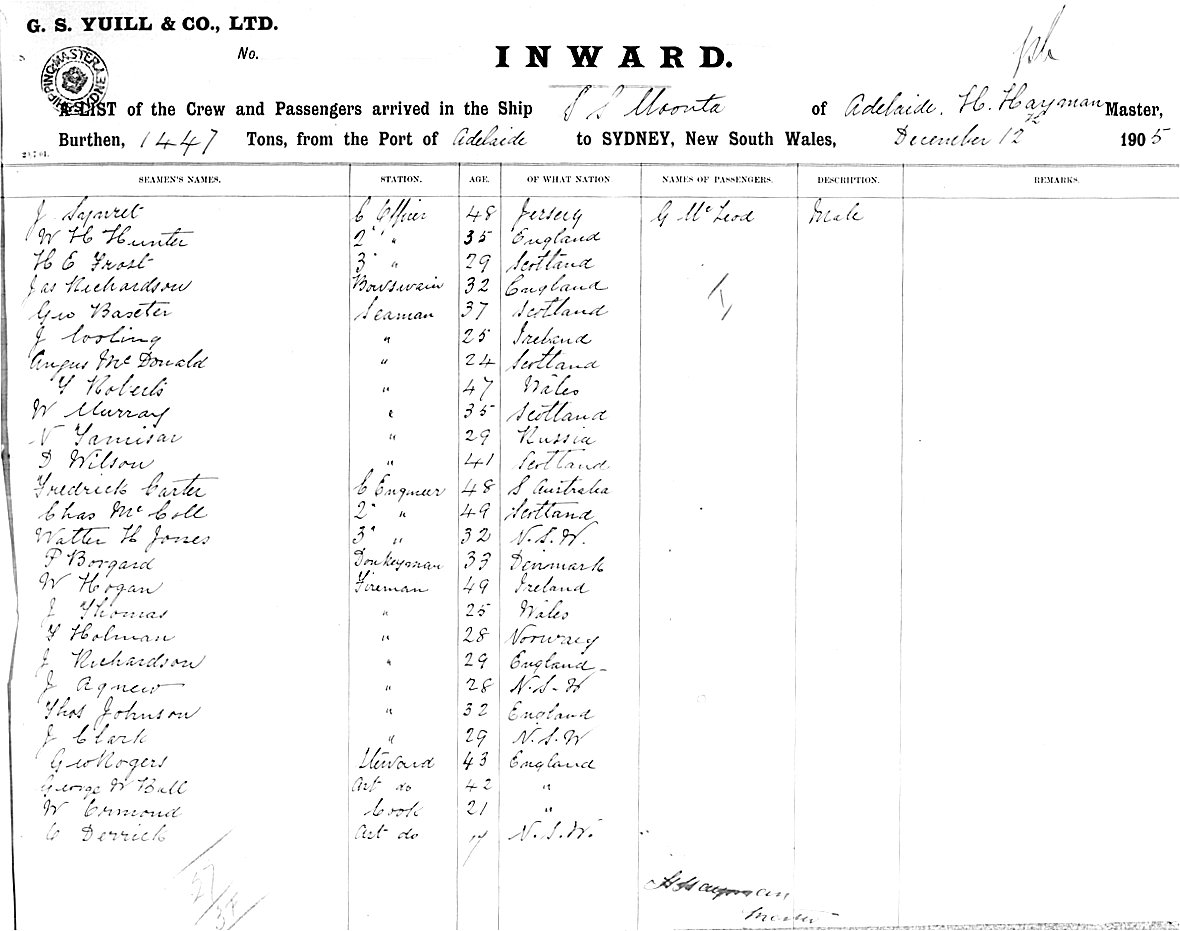 G. S. YUILL & CO., LTD.
No.
INWARD.
SHIPPING MASTER SYDNEY
A LIST of the Crew and Passengers arrived in the Ship S S Moonta of Adelaide. H. Hayman Master,
Burthen, 1447 Tons, from the Port of Adelaide to SYDNEY, New South Wales, December 12 1905
SEAMEN'S NAMES. STATION. AGE. OF WHAT NATION NAMES OF PASSENGERS. DESCRIPTION. REMARKS.
J C Officer 48 Jersey G McLeod Male
W H Hunter 2 " " 35 England
H E Frost 3 " " 29 Scotland
Jas Richardson Bowswain 32 England
Geo Baxter Seaman 37 Scotland
J Cooling " 25 Ireland
Angus McDonald " 24 Scotland
Roberts " 47 Wales
W Murray " 35 Scotland
N " 29 Russia
D Wilson " 41 Scotland
Fredrick Carter C Engineer 48 S Australia
Chas McColl 2 " " 49 Scotland
Walter H Jones 3 " " 32 N.S.W.
P Borgard Donkeyman 33 Denmark
W Hogan Fireman 49 Ireland
J Thomas " 25 Wales
Holman " 28 Norway
J Richardson " 29 England
J Agnew " 28 N.S.W
Thos Johnson " 32 England
J Clark " 29 N.S.W
Geo Rogers Steward 43 England
George W Ball Ast do 42 "
W Ormond Cook 21 "
C Derrick Ast do 17 N.S.W.
27/38
H Hayman
Master